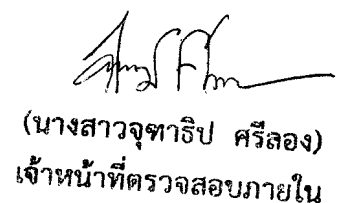 (นางสาวจุฑาธิป ศรีลอง)
เจ้าหน้าที่ตรวจสอบภายใน